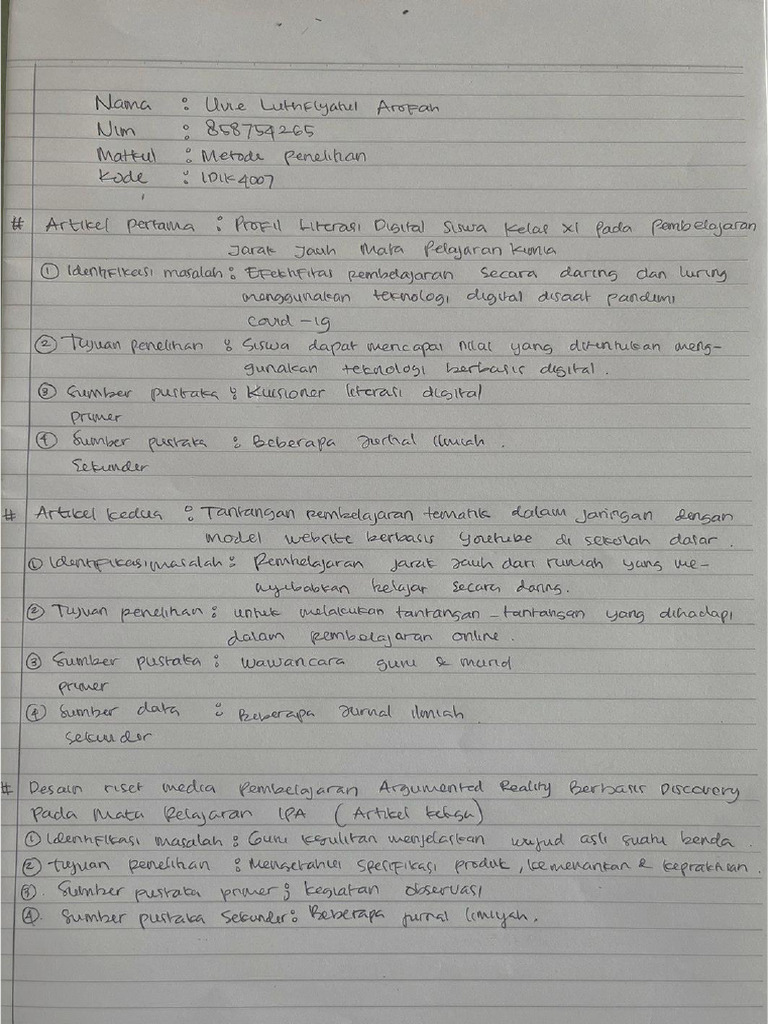 Nama : Uvie Luthfiyatul Arofah
Nim : 858754265
Matkul : Metode Penelitian
Kode : IDIK4007
# Artikel pertama : Profil Literasi Digital Siswa Kelas XI pada Pembelajaran
Jarak Jauh Mata Pelajaran Kimia
① Identifikasi masalah : Efektifitas pembelajaran secara daring dan luring
menggunakan teknologi digital disaat pandemi
covid-19
② Tujuan penelitian : Siswa dapat mencapai nilai yang ditentukan meng-
gunakan teknologi berbasis digital.
③ Sumber pustaka : Kuisioner literasi digital
primer
④ Sumber pustaka : Beberapa Jurnal Ilmiah.
Sekunder
# Artikel kedua : Tantangan pembelajaran tematik dalam jaringan dengan
model website berbasis Youtube di sekolah dasar.
① Identifikasi masalah : Pembelajaran jarak jauh dari rumah yang me-
nyebabkan belajar secara daring.
② Tujuan penelitian : untuk melakukan tantangan-tantangan yang dihadapi
dalam pembelajaran online.
③ Sumber pustaka : wawancara guru & murid
primer
④ Sumber data : Beberapa Jurnal ilmiah
sekunder
# Desain riset media Pembelajaran Argumented Reality Berbasis Discovery
Pada Mata Pelajaran IPA (Artikel ketiga)
① Identifikasi masalah : Guru kesulitan menjelaskan wujud asli suatu benda.
② Tujuan penelitian : Mengetahui spesifikasi produk, kemenarikan & kepraktisan.
③. Sumber pustaka primer : kegiatan observasi
④. Sumber pustaka Sekunder : Beberapa jurnal ilmiyah.